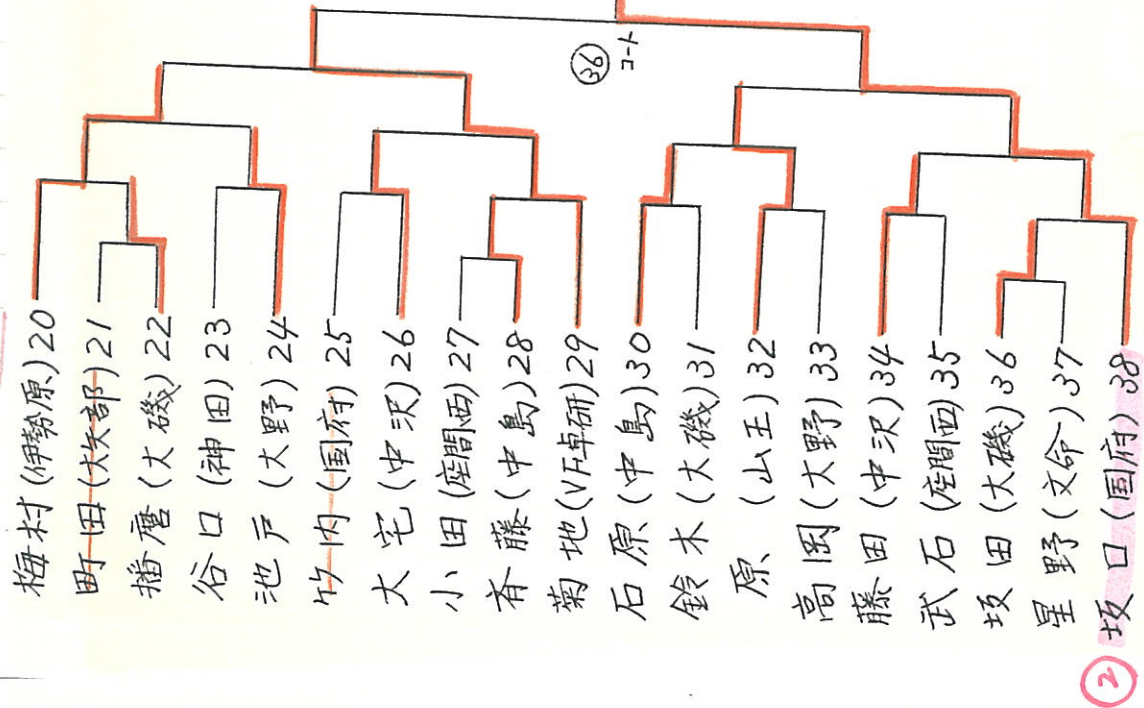 ㊱
コート
梅村(伊勢原)20
町田(大矢部)21
播磨(大磯)22
谷口(神田)23
池戸(大野)24
竹内(国府)25
大宅(中沢)26
小田(座間西)27
斉藤(中島)28
菊地(VF卓研)29
石原(中島)30
鈴木(大磯)31
原(山王)32
高岡(大野)33
藤田(中沢)34
武石(座間西)35
坂田(大磯)36
星野(文命)37
坂口(国府)38
②